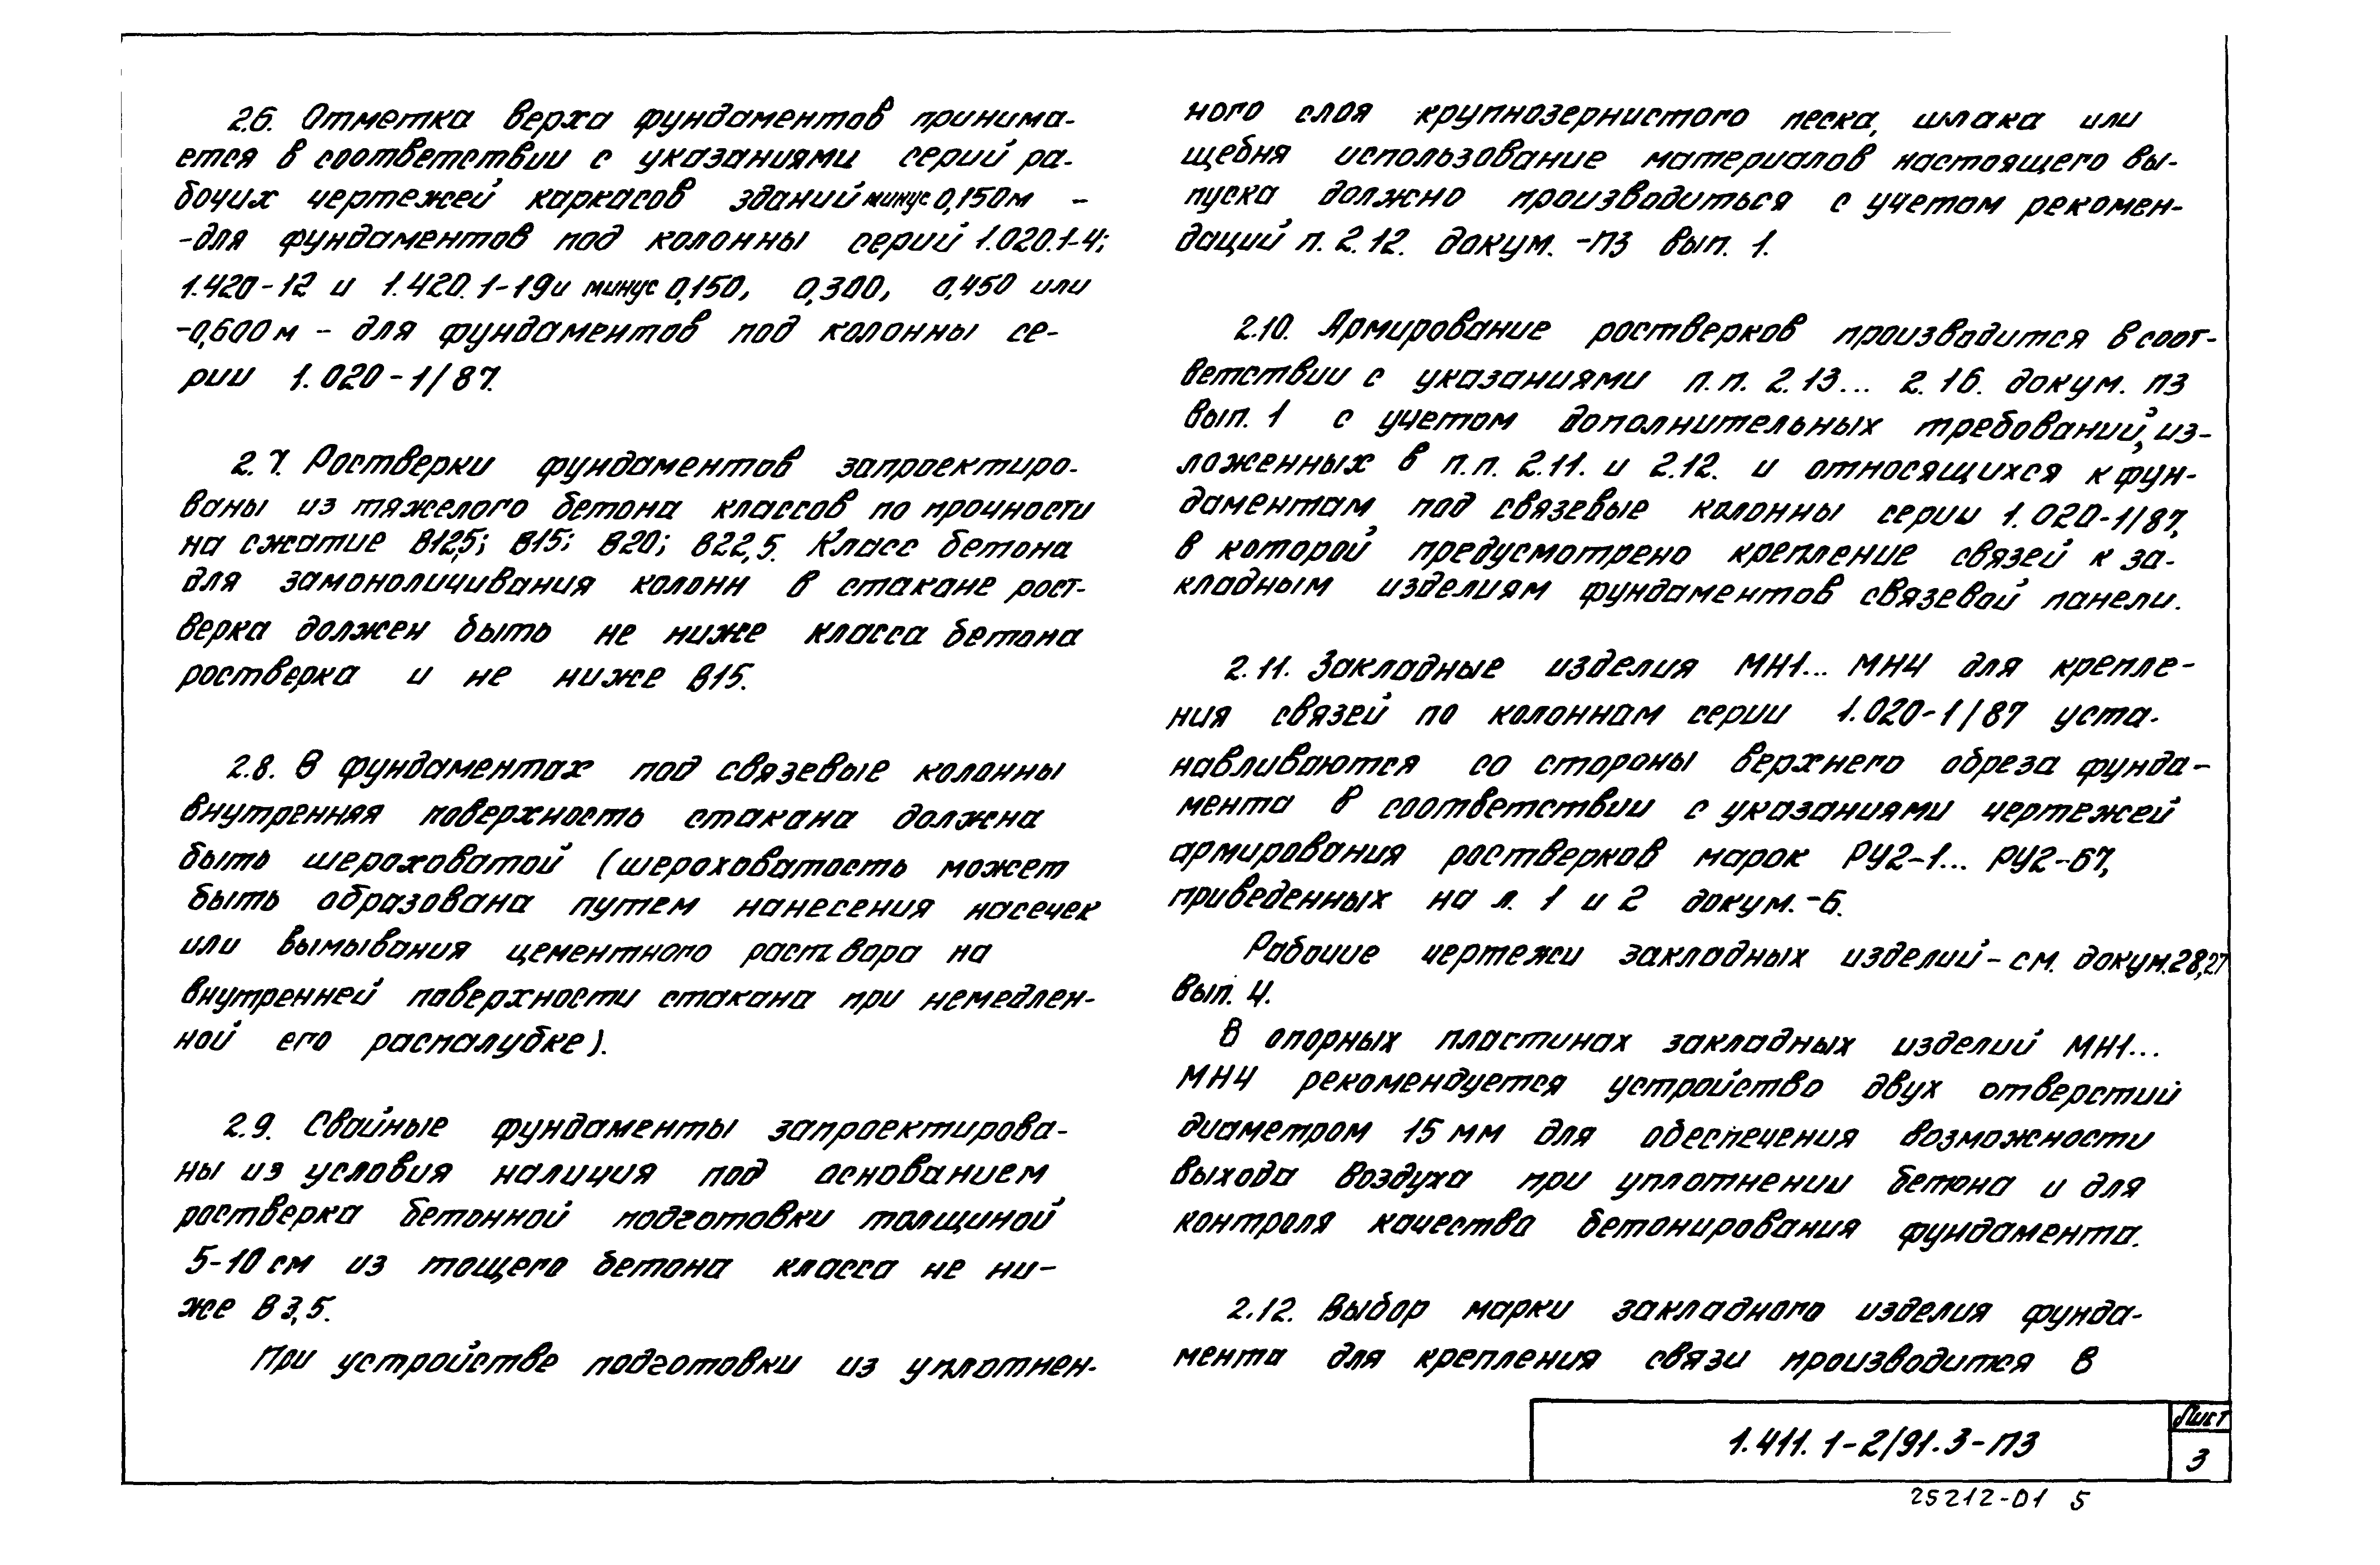 2.6. Отметка верха фундаментов принима-
ется в соответствии с указаниями серий ра-
бочих чертежей каркасов зданий минус 0,150м -
-для фундаментов под колонны серий 1.020.1-4;
1.420-12 и 1.420.1-19 и минус 0,150, 0,300, 0,450 или
-0,600м - для фундаментов под колонны се-
рии 1.020-1/87.
2.7. Ростверки фундаментов запроектиро-
ваны из тяжелого бетона классов по прочности
на сжатие В12,5; В15; В20; В22,5. Класс бетона
для замоноличивания колонн в стакане рост-
верка должен быть не ниже класса бетона
ростверка и не ниже В15.
2.8. В фундаментах под связевые колонны
внутренняя поверхность стакана должна
быть шероховатой (шероховатость может
быть образована путем нанесения насечек
или вымывания цементного раствора на
внутренней поверхности стакана при немедлен-
ной его распалубке).
2.9. Свайные фундаменты запроектирова-
ны из условия наличия под основанием
ростверка бетонной подготовки толщиной
5-10см из тощего бетона класса не ни-
же В3,5.
При устройстве подготовки из уплотнен-
ного слоя крупнозернистого песка, шлака или
щебня использование материалов настоящего вы-
пуска должно производиться с учетом рекомен-
даций п. 2.12. докум. -ПЗ вып. 1.
2.10. Армирование ростверков производится в соот-
ветствии с указаниями п.п. 2.13... 2.16. докум. ПЗ
вып. 1 с учетом дополнительных требований, из-
ложенных в п.п. 2.11. и 2.12. и относящихся к фун-
даментам под связевые колонны серии 1.020-1/87,
в которой предусмотрено крепление связей к за-
кладным изделиям фундаментов связевой панели.
2.11. Закладные изделия МН1... МН4 для крепле-
ния связей по колоннам серии 1.020-1/87 уста-
навливаются со стороны верхнего обреза фунда-
мента в соответствии с указаниями чертежей
армирования ростверков марок РУ2-1... РУ2-67,
приведенных на л. 1 и 2 докум. -6.
Рабочие чертежи закладных изделий - см. докум.28,27
вып. 4.
В опорных пластинах закладных изделий МН1...
МН4 рекомендуется устройство двух отверстий
диаметром 15 мм для обеспечения возможности
выхода воздуха при уплотнении бетона и для
контроля качества бетонирования фундамента.
2.12. Выбор марки закладного изделия фунда-
мента для крепления связи производится в
1.411.1-2/91.3-ПЗ
Лист
3
25212-01 5